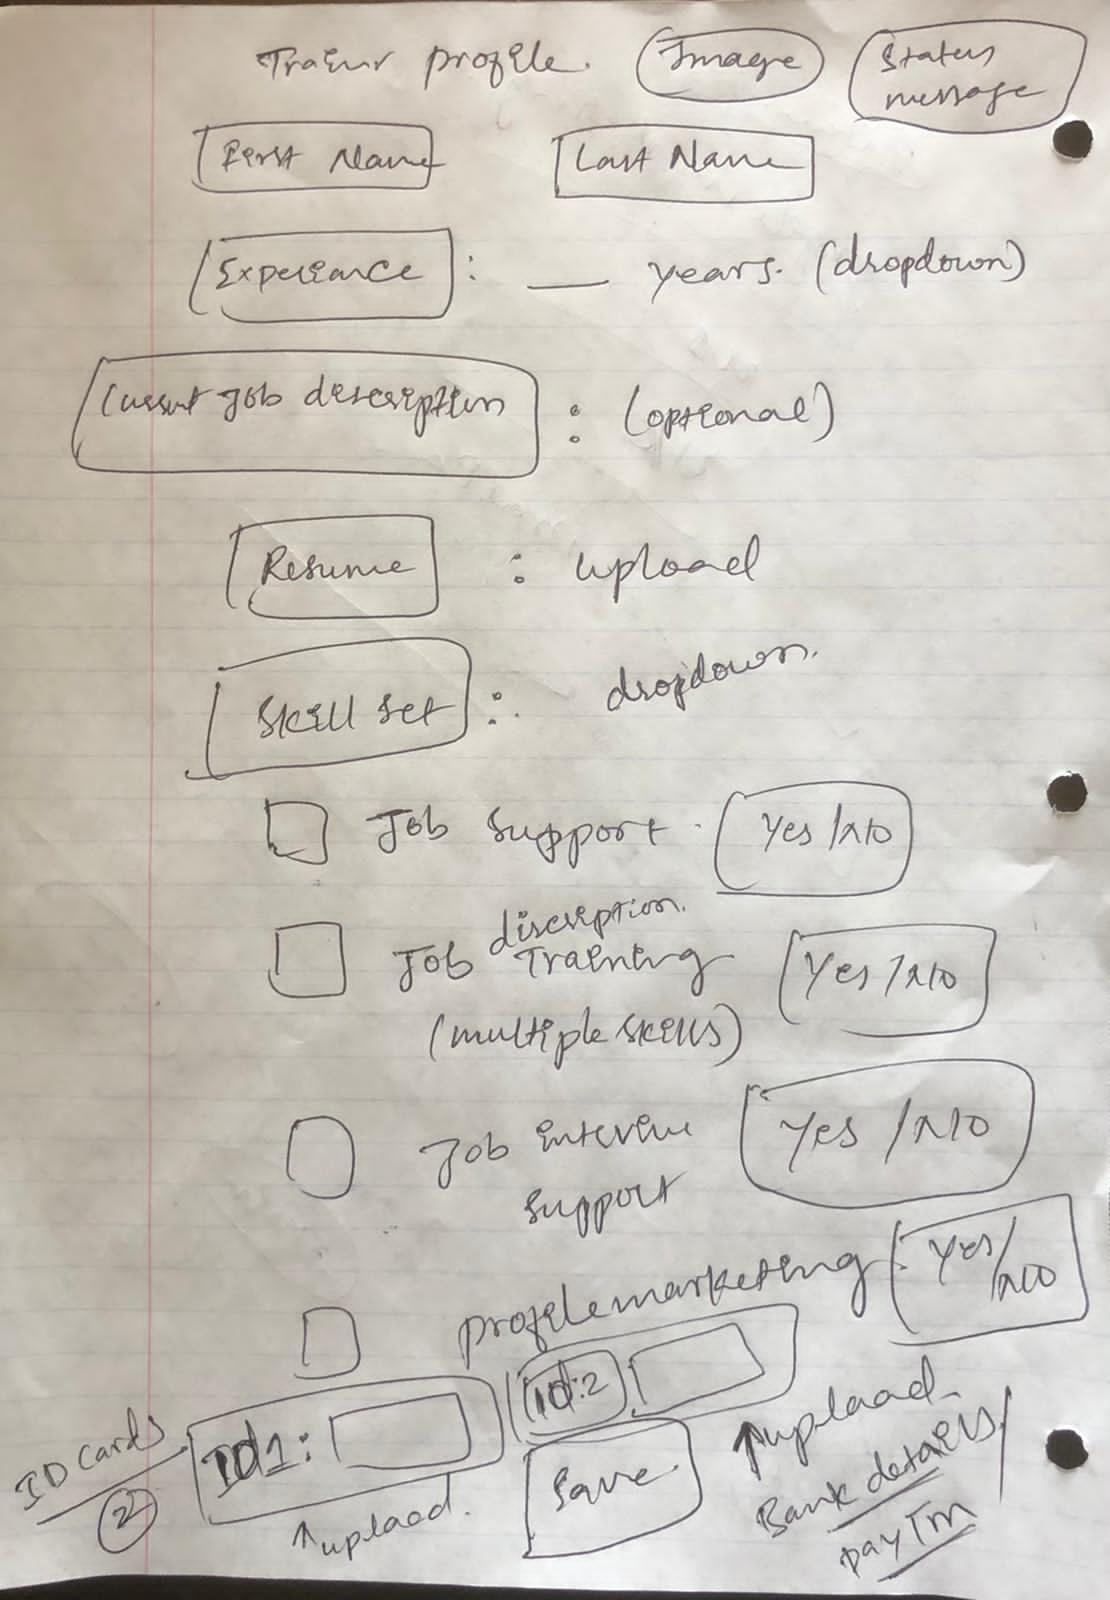 Trainer profile. Image Status message
First Name Last Name
Experiance : __ years. (dropdown)
Current Job discription : (optional)
Resume : upload
Skill set : dropdown.
Job Support. Yes/NO
discription.
Job Training Yes/NO
(multiple skills)
Job interview Yes/NO
support
profilemarketing. Yes/NO
ID cards
2
Id1: Id:2
↑upload. Save. ↑upload.
Bank details/
payTm